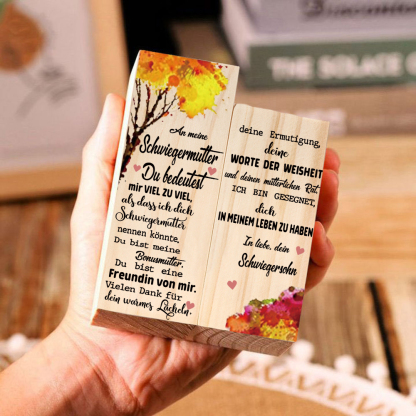 An meine
Schwiegermutter
Du bedeutest
mir VIEL ZU VIEL,
als dass ich dich
Schwiegermutter
nennen könnte.
Du bist meine
Bonusmutter.
Du bist eine
Freundin von mir.
Vielen Dank für
dein warmes Lächeln.
deine Ermutigung,
deine
WORTE DER WEISHEIT
und deinen mütterlichen Rat.
ICH BIN GESEGNET,
dich
IN MEINEM LEBEN ZU HABEN
In liebe, dein
Schwiegersohn
THE SOLACE O